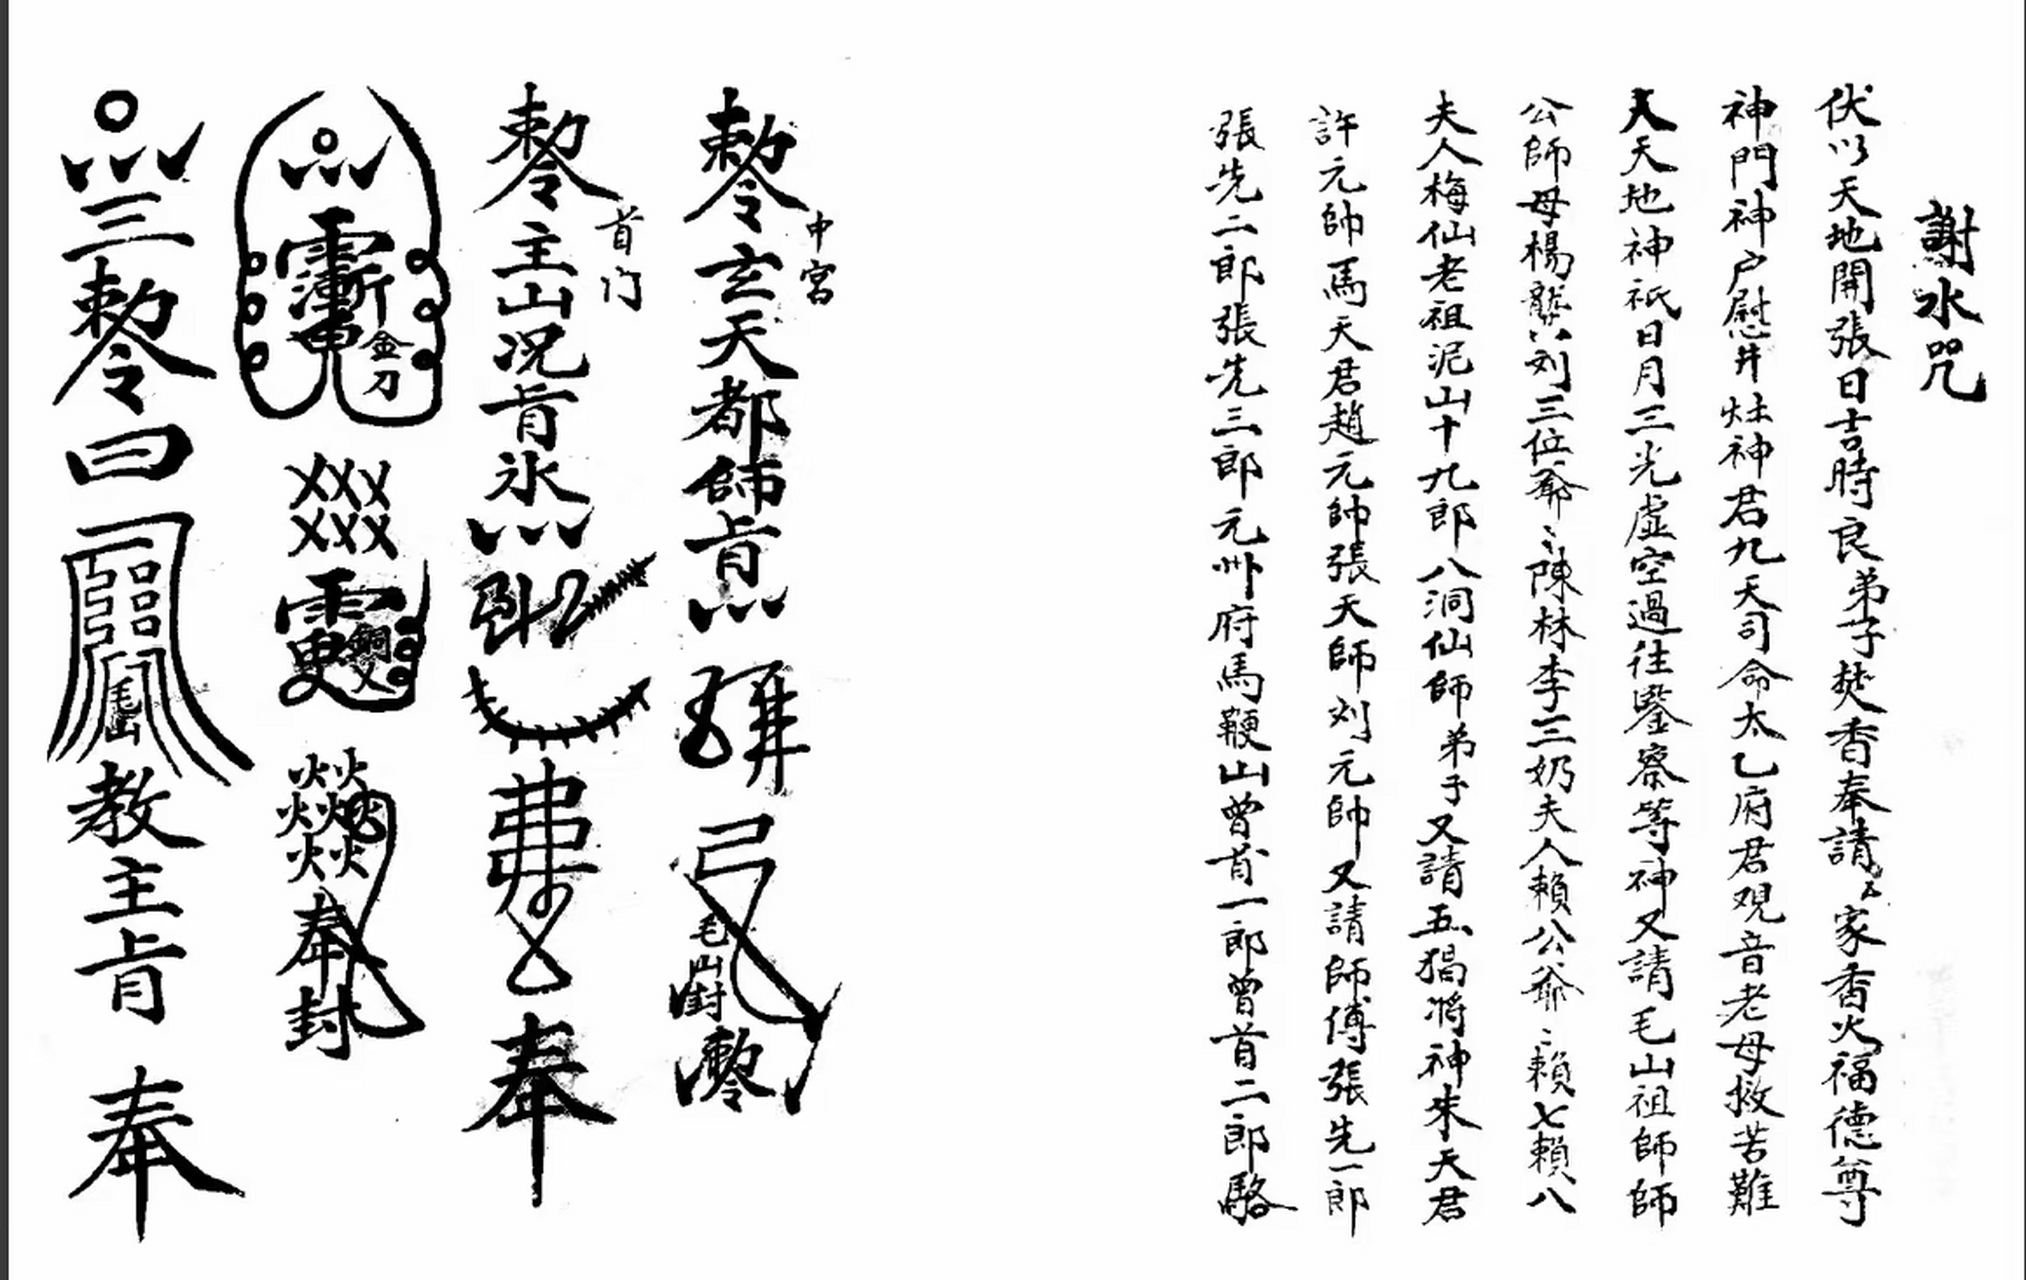 謝水咒
伏以天地開張日吉時良弟子焚香奉請家香火福德尊
神門神户慰井灶神君九天司命太乙府君观音老母救苦難
天天地神祇日月三光虛空過往鑒察等神又請毛山祖師師
公師母楊龔刘三位爺〻陳林李三奶夫人賴公爺〻賴七賴八
夫人梅仙老祖泥山十九郎八洞仙師弟子又請五猖將神朱天君
許元帥馬天君趙元帥張天師刘元帥又請師傅張先一郎
張先二郎張先三郎元州府馬鞭山曾首一郎曾首二郎駱
敕令玄天都師肯
中宮
弓
毛山封
敕令
敕令主山况肯氷
首门
弗
奉
金刀
銅叉
奉封
三敕令曰
毛山
教主肯
奉